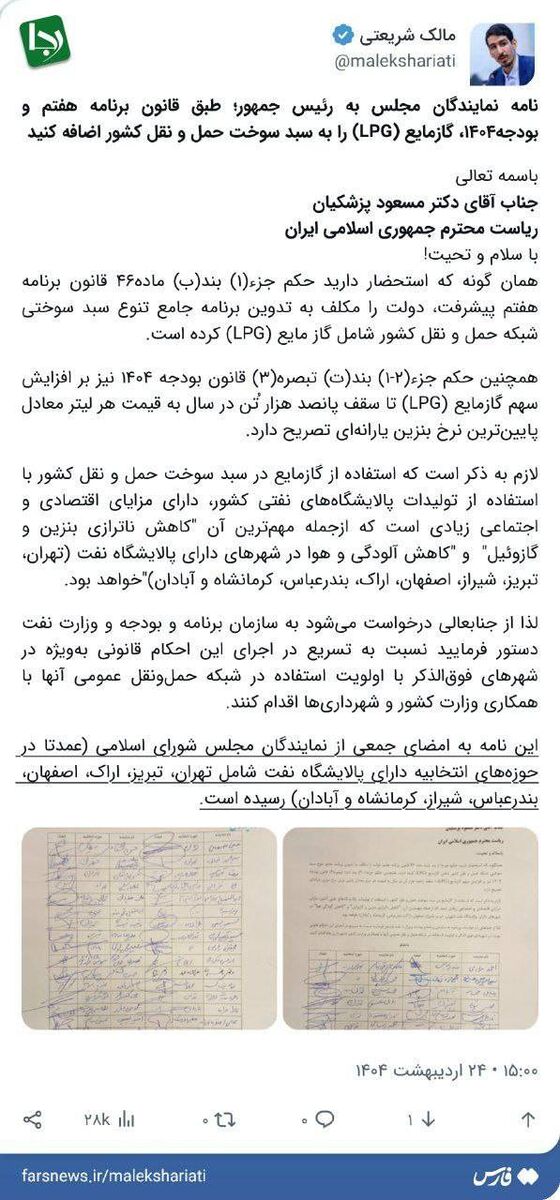 رجا
مالک شریعتی
@malekshariati
نامه نمایندگان مجلس به رئیس جمهور؛ طبق قانون برنامه هفتم و
بودجه۱۴۰۴، گازمایع (LPG) را به سبد سوخت حمل و نقل کشور اضافه کنید
باسمه تعالی
جناب آقای دکتر مسعود پزشکیان
ریاست محترم جمهوری اسلامی ایران
با سلام و تحیت!
همان گونه که استحضار دارید حکم جزء(۱) بند(ب) ماده۴۶ قانون برنامه
هفتم پیشرفت، دولت را مکلف به تدوین برنامه جامع تنوع سبد سوختی
شبکه حمل و نقل کشور شامل گاز مایع (LPG) کرده است.
همچنین حکم جزء(۲-۱) بند(ت) تبصره(۳) قانون بودجه ۱۴۰۴ نیز بر افزایش
سهم گازمایع (LPG) تا سقف پانصد هزار تُن در سال به قیمت هر لیتر معادل
پایین‌ترین نرخ بنزین یارانه‌ای تصریح دارد.
لازم به ذکر است که استفاده از گازمایع در سبد سوخت حمل و نقل کشور با
استفاده از تولیدات پالایشگاه‌های نفتی کشور، دارای مزایای اقتصادی و
اجتماعی زیادی است که ازجمله مهم‌ترین آن "کاهش ناترازی بنزین و
گازوئیل" و "کاهش آلودگی و هوا در شهرهای دارای پالایشگاه نفت (تهران،
تبریز، شیراز، اصفهان، اراک، بندرعباس، کرمانشاه و آبادان)"خواهد بود.
لذا از جنابعالی درخواست می‌شود به سازمان برنامه و بودجه و وزارت نفت
دستور فرمایید نسبت به تسریع در اجرای این احکام قانونی به‌ویژه در
شهرهای فوق‌الذکر با اولویت استفاده در شبکه حمل‌ونقل عمومی آنها با
همکاری وزارت کشور و شهرداری‌ها اقدام کنند.
این نامه به امضای جمعی از نمایندگان مجلس شورای اسلامی (عمدتا در
حوزه‌های انتخابیه دارای پالایشگاه نفت شامل تهران، تبریز، اراک، اصفهان،
بندرعباس، شیراز، کرمانشاه و آبادان) رسیده است.
ریاست محترم جمهوری اسلامی ایران
۱۵:۰۰ • ۲۴ اردیبهشت ۱۴۰۴
۱ ۰ ۰ ۲۸k
farsnews.ir/malekshariati
فارس